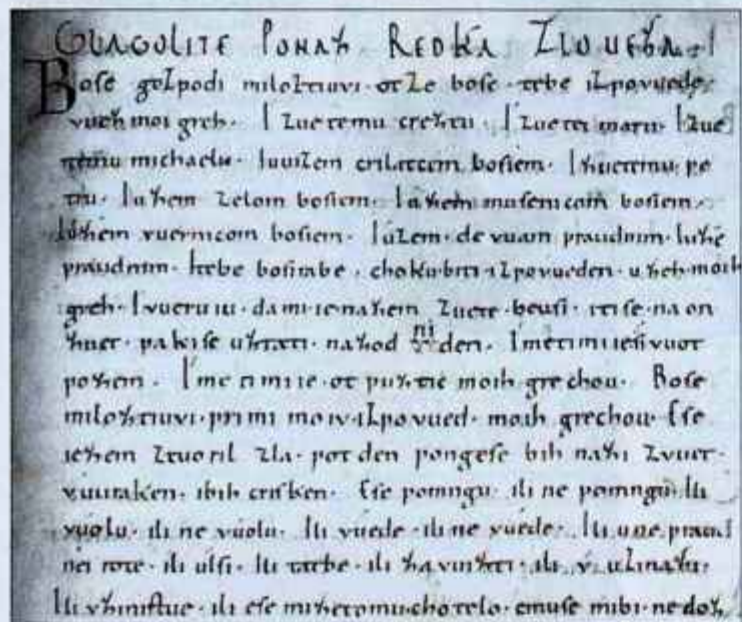 GLAGOLITE PONAZ REDKA ZLOUEZA. I
Bose gozpodi miloztivvi. otze bose. tebe izpovuede
vuez moi greh. I zuetemu creztu. I zuetei marii. I zue
temu michaelu. Iuuizem crilatcem bosiem. I zuetemu pe
tru. Iuzem zelom bosiem. Iuzem musenicom bosiem.
Iuzem vuernicom bosiem. Iuzem. devuam praudnim. Iuze
praudnim. Itebe bosi rabe. choku biti. izpovueden. uzeh. moih
greh. I vueruiu. da mi ie. nazem zuete. beusi. iti se. na on
zuet. paki se uztati. nazod ni den. Imeti mi ie sivuot
pozem. Imeti mi ie. otpuztic moih grechou. Bose
miloztivvi. primi moiv. izpovued. moih grechou. Ese
iezem ztuoril zla. pot den pongese bih nazi zvuet.
vuuraken. ibih crisken. Ese pomngu. ili ne pomngu. Ili
vuolu. ili ne vuolu. Ili vuede. ili ne vuede. Ili u ne praud
nei rote. ili ulsi. Ili tatbe. ili zavuizti. ili v uzmazi.
Ili vzinistue. ili ese mi ze tomu. chotelo. emuse mi bi. ne doz